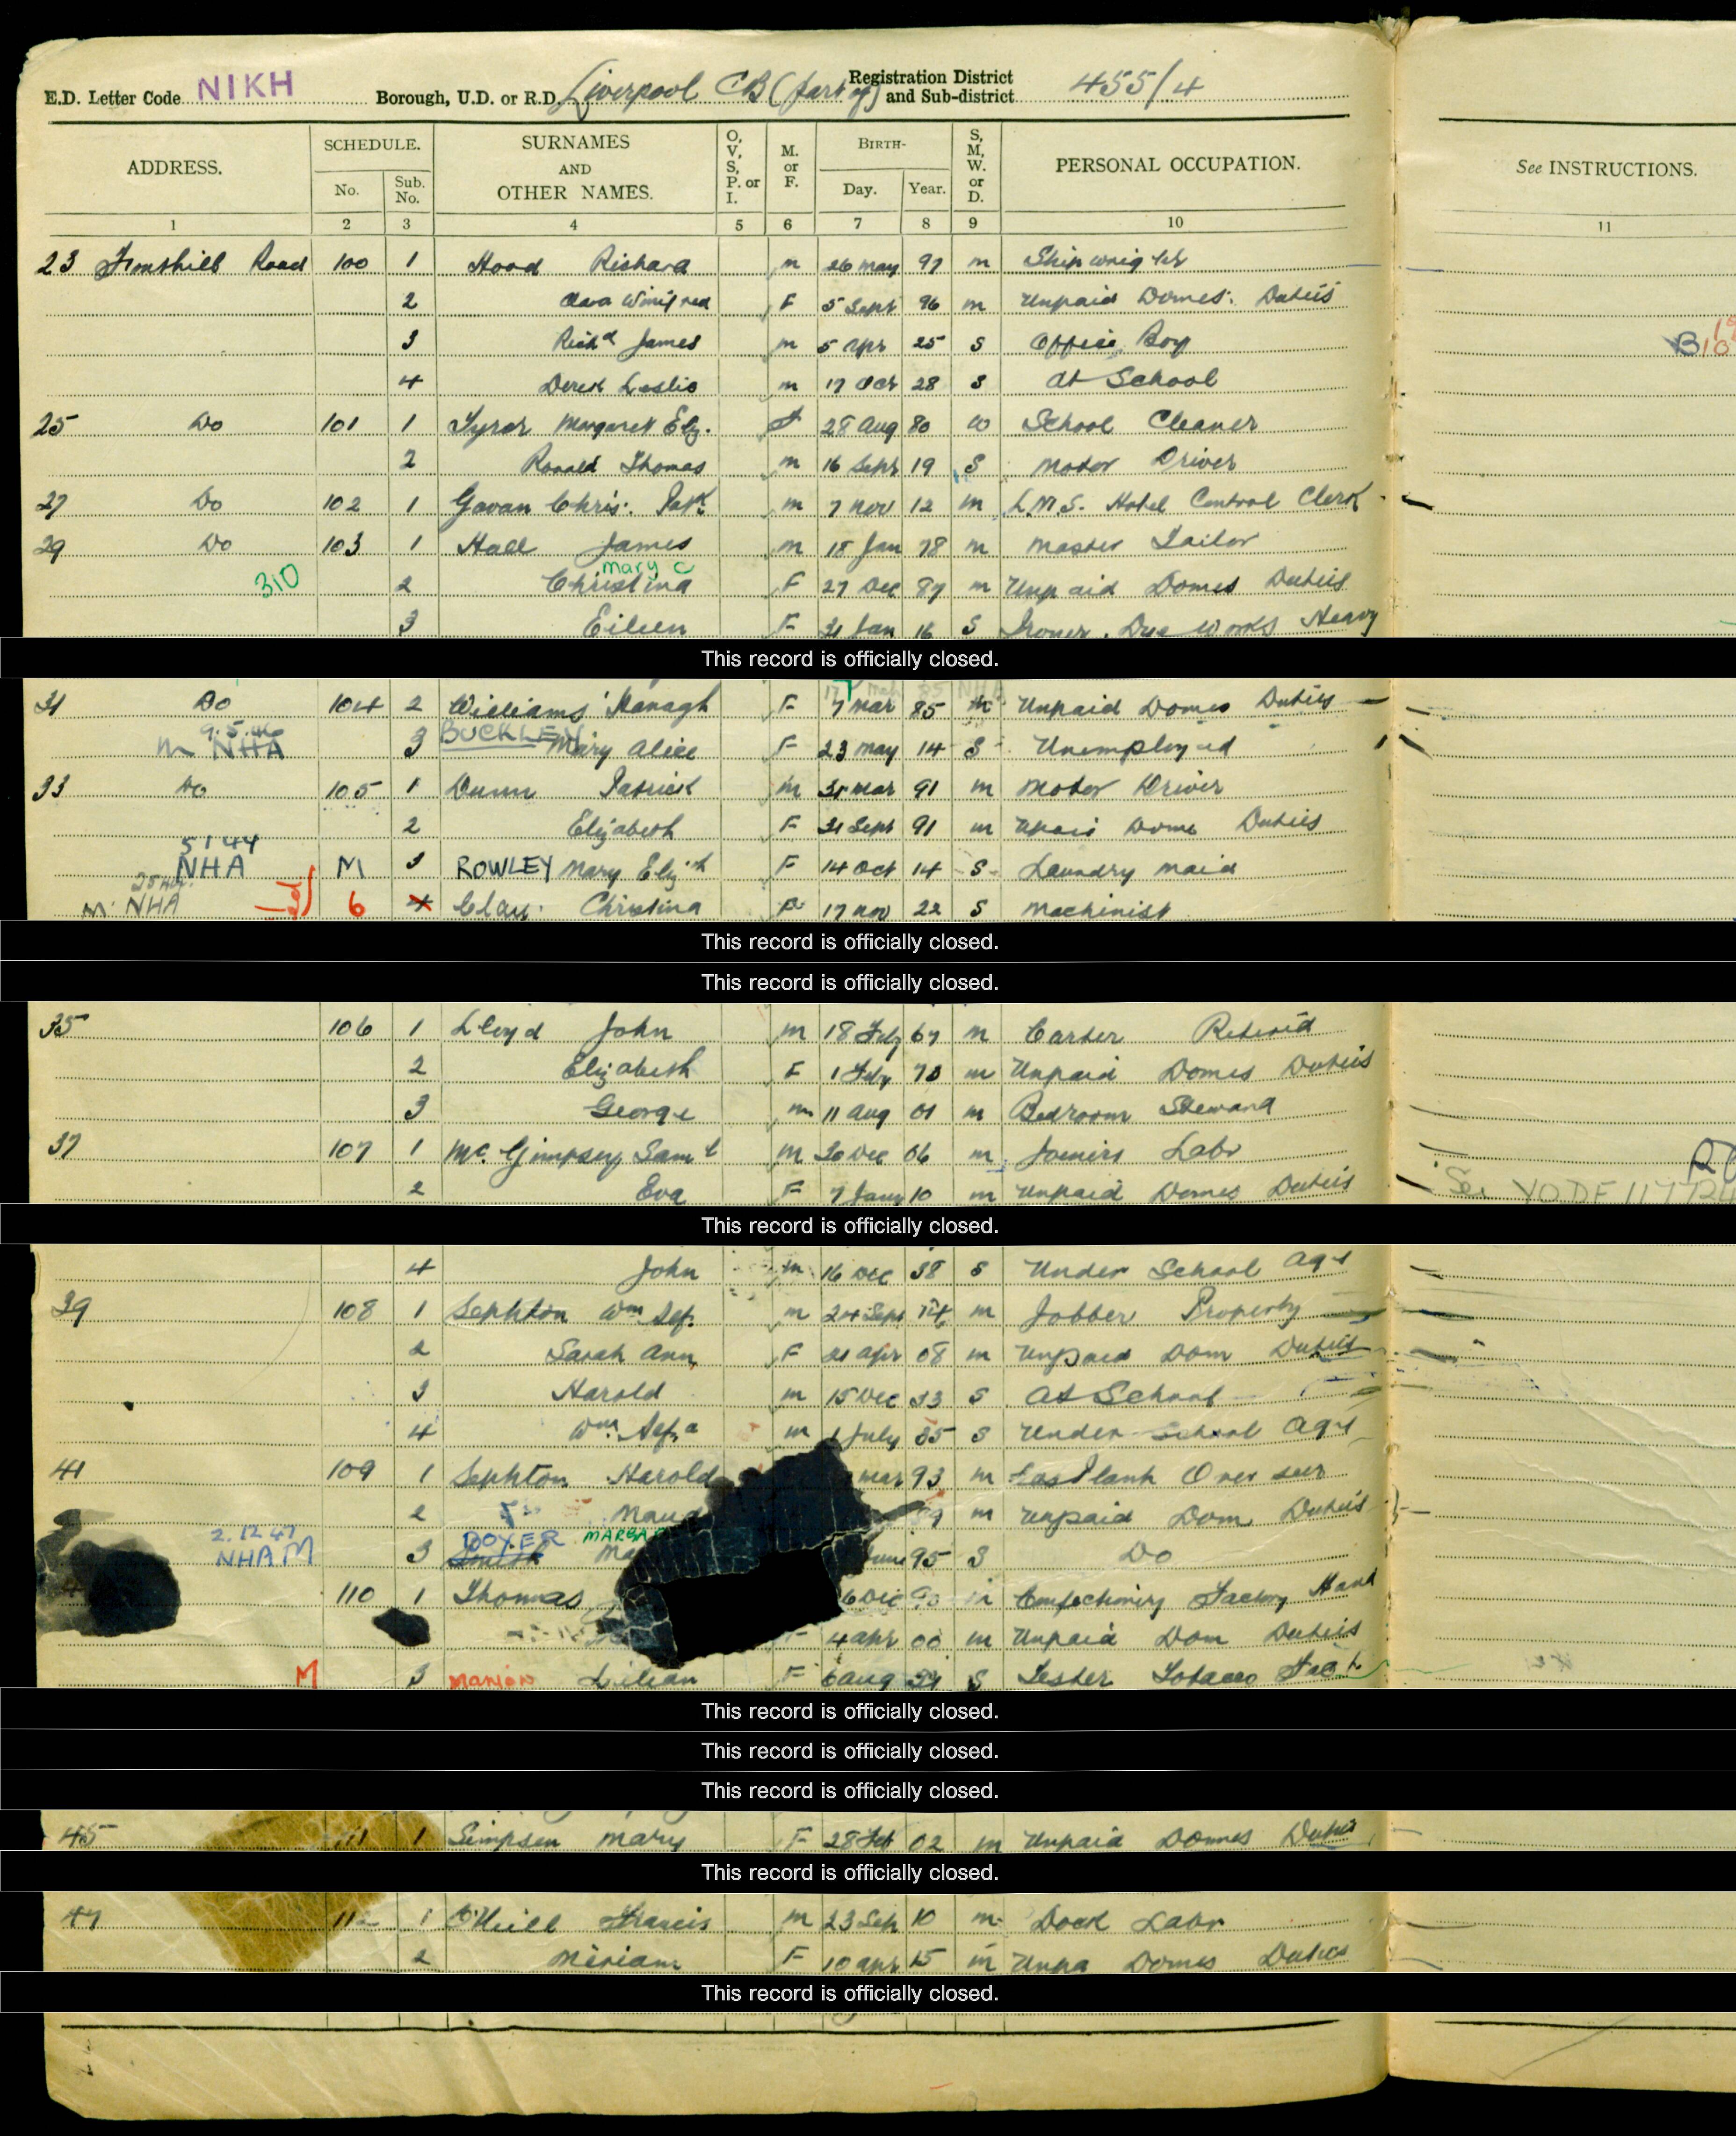 E.D. Letter Code NIKH Borough, U.D. or R.D. Liverpool CB (part of) Registration District and Sub-district 455/4
ADDRESS. SCHEDULE. No. Sub. No. SURNAMES AND OTHER NAMES. O, V, S, P. or I. M. or F. BIRTH- Day. Year. S, M, W. or D. PERSONAL OCCUPATION. See INSTRUCTIONS.
1 2 3 4 5 6 7 8 9 10 11
23 Road 100 1 Hood Richard m 26 May 97 m Shipwright
2 Clara Winifred F 5 Sept 96 m Unpaid Domes. Duties
3 Richd James m 5 Apr 25 S Office Boy
4 Derek Leslie m 17 Oct 28 S At School
25 Do 101 1 Tyrer Margaret Eliz. F 28 Aug 80 W School Cleaner
2 Ronald Thomas m 16 Sept 19 S Motor Driver
27 Do 102 1 Gavan Chris. Patk m 7 Nov 12 m L.M.S. Hotel Control Clerk
29 Do 103 1 Hall James m 18 Jan 78 m Master Tailor
Mary C
310 2 Christina F 27 Dec 87 m Unpaid Domes Duties
3 Eileen F 31 Jan 16 S Ironer. Dye Works Heavy
This record is officially closed.
31 Do 104 2 Williams Hanagh F 7 Mar 85 m Unpaid Domes Duties
9.5.46 BUCKLEY
m NHA 3 Mary Alice F 23 May 14 S Unemployed
33 Do 105 1 Dunn Patrick m 31 Mar 91 m Motor Driver
2 Elizabeth F 21 Sept 91 m Unpaid Dome Duties
5 1 44
NHA M 3 ROWLEY Mary Elizth F 14 Oct 14 S Laundry Maid
M NHA 6 4 Clay Christina F 17 Nov 22 S Machinist
This record is officially closed.
This record is officially closed.
35 106 1 Lloyd John m 18 Feb 67 m Carter Retired
2 Elizabeth F 1 Feb 70 m Unpaid Domes Duties
3 George m 11 Aug 01 m Bedroom Steward
37 107 1 McGimpsey Saml m 20 Dec 06 m Joiners Labr
2 Eva F 7 Jany 10 m Unpaid Domes Duties See YODF
This record is officially closed.
4 John m 16 Dec 38 S Under School Age
39 108 1 Sephton Wm Sef. m 24 Sept m Jobber Property
2 Sarah Ann F 21 Apr 08 m Unpaid Dom Duties
3 Harold m 15 Dec 33 S At School
4 Wm Sef. m 1 July 35 S Under School Age
41 109 1 Sephton Harold Mar 93 m Gas Plant Over seer
2 m Unpaid Dom Duties
2.12.47 DOYER
NHA M 3 Smith June 95 S Do
110 1 Thomas 6 Dec m Confectionery Factory Hand
4 Apr 00 m Unpaid Dom Duties
M 3 Lilian F 6 Aug S Tester Tobacco Fact
This record is officially closed.
This record is officially closed.
This record is officially closed.
45 111 1 Simpson Mary F 28 Feb 02 m Unpaid Domes Duties
This record is officially closed.
47 112 1 O'Neill Francis m 23 Sep 10 m Dock Labr
2 Miriam F 10 Apr 15 m Unpa Domes Duties
This record is officially closed.